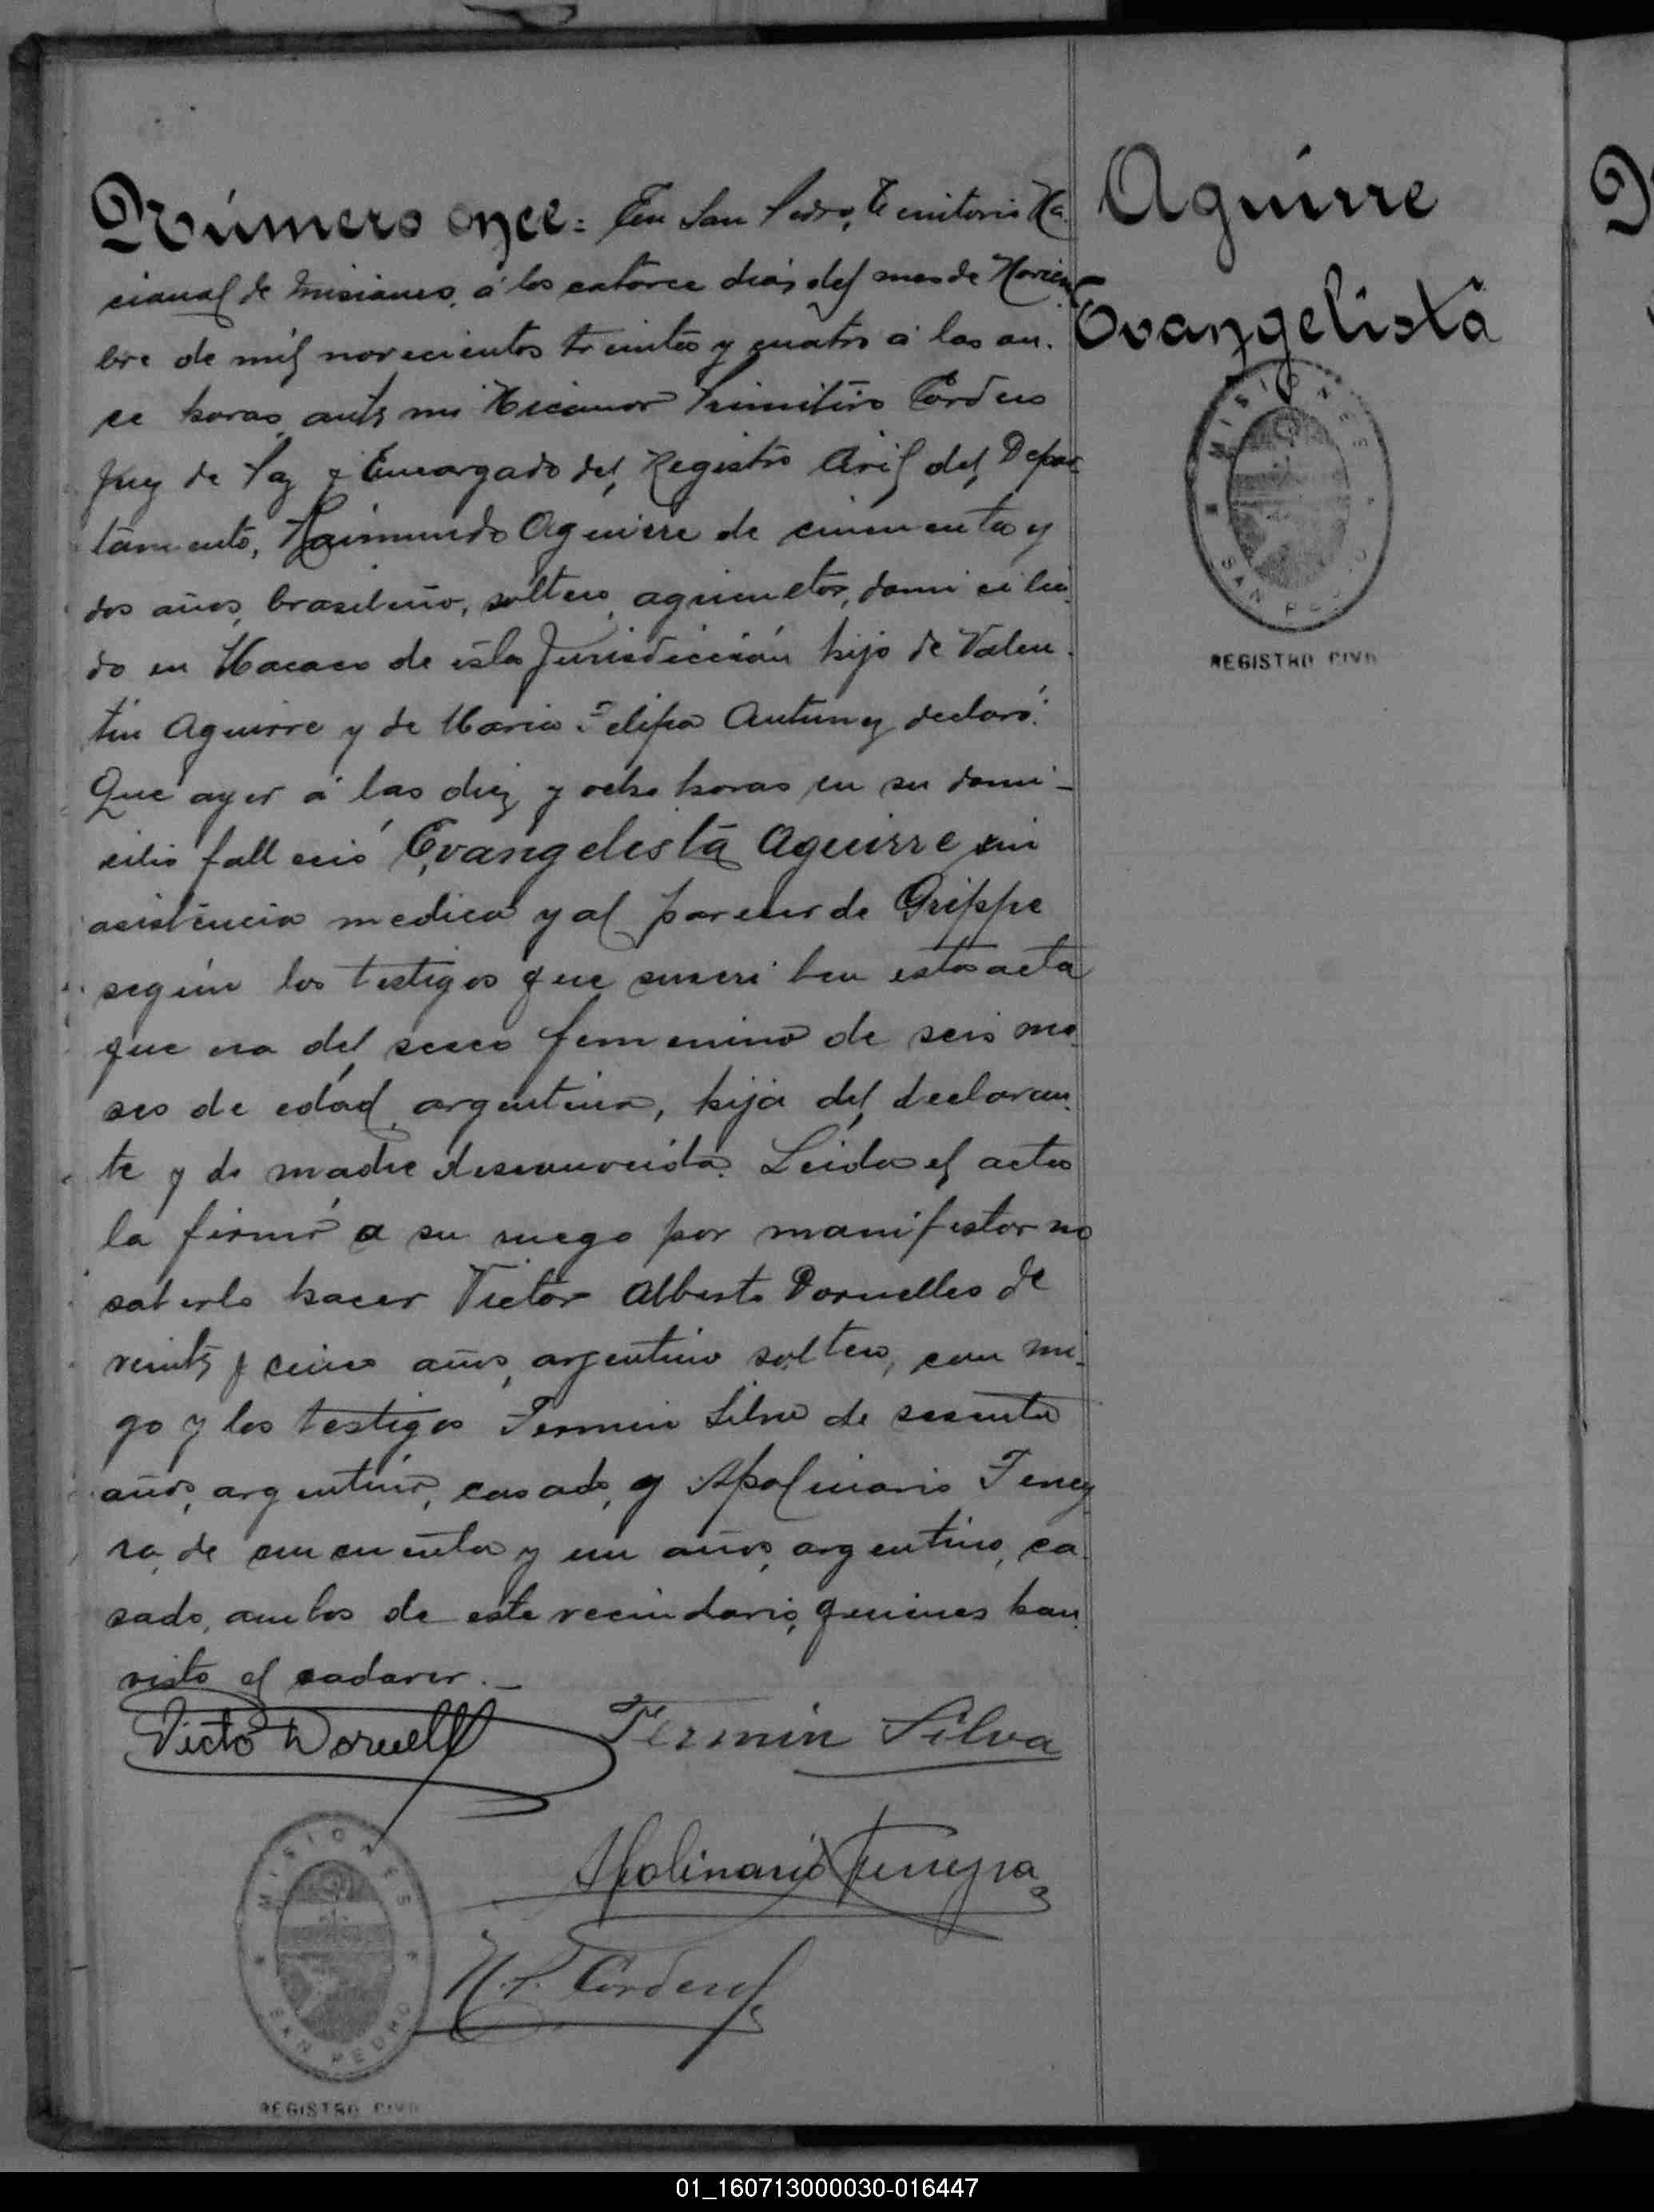 Número once: En San Pedro, Territorio Na
cional de Misiones, á los catorce dias del mes de Noviem
bre de mil novecientos treinta y cuatro á las on.
ce horas, ante mi Nicanor Primitivo Cordero
Juez de Paz y Encargado del Registro Civil del Depar
tamento, Raimundo Aguirre de cincuenta y
dos años, brasileño, soltero, agricultor, domicilia
do en Macaco de esta Jurisdicción hijo de Valen.
tin Aguirre y de Maria Felipa Antunez declaró:
Que ayer á las diez y ocho horas en su domi-
cilio falleció Evangelista Aguirre sin
asistencia medica y al parecer de Grippe
según los testigos que suscriben esta acta
que era del sexo femenino de seis me
ses de edad, argentina, hija del declaran.
te y de madre desconocida. Leida el acta
la firmó a su ruego por manifestar no
saberlo hacer Victor Alberto Dornelles de
veinte y cinco años, argentino soltero, con mi-
go y los testigos Fermin Silva de sesenta
años, argentino, casado, y Apolinario Ferrey
ra, de cincuenta y un años, argentino, ca
sado, ambos de este vecindario, quienes han
visto el cadaver.-
Victo Dornell
Fermin Silva
Apolinario Ferreyra
N. P. Cordero
MISIONES
SAN PEDRO
REGISTRO CIVIL
Aguirre
Evangelista
MISIONES
SAN PEDRO
REGISTRO CIVIL
01_160713000030-016447